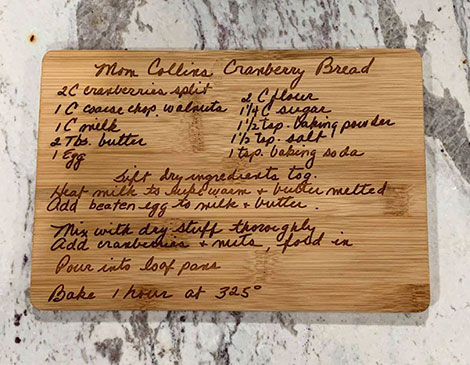 Mom Collins Cranberry Bread
2 C cranberries split
1 C coarse chop. walnuts
1 C milk
2 Tbs. butter
1 Egg
2 C flour
1¼ C sugar
1½ tsp. baking powder
1½ tsp. salt
1 tsp. baking soda
Sift dry ingredients tog.
Heat milk to lukewarm + butter melted
Add beaten egg to milk + butter.
Mix with dry stuff thoroughly
Add cranberries + nuts, fold in
Pour into loaf pans
Bake 1 hour at 325°